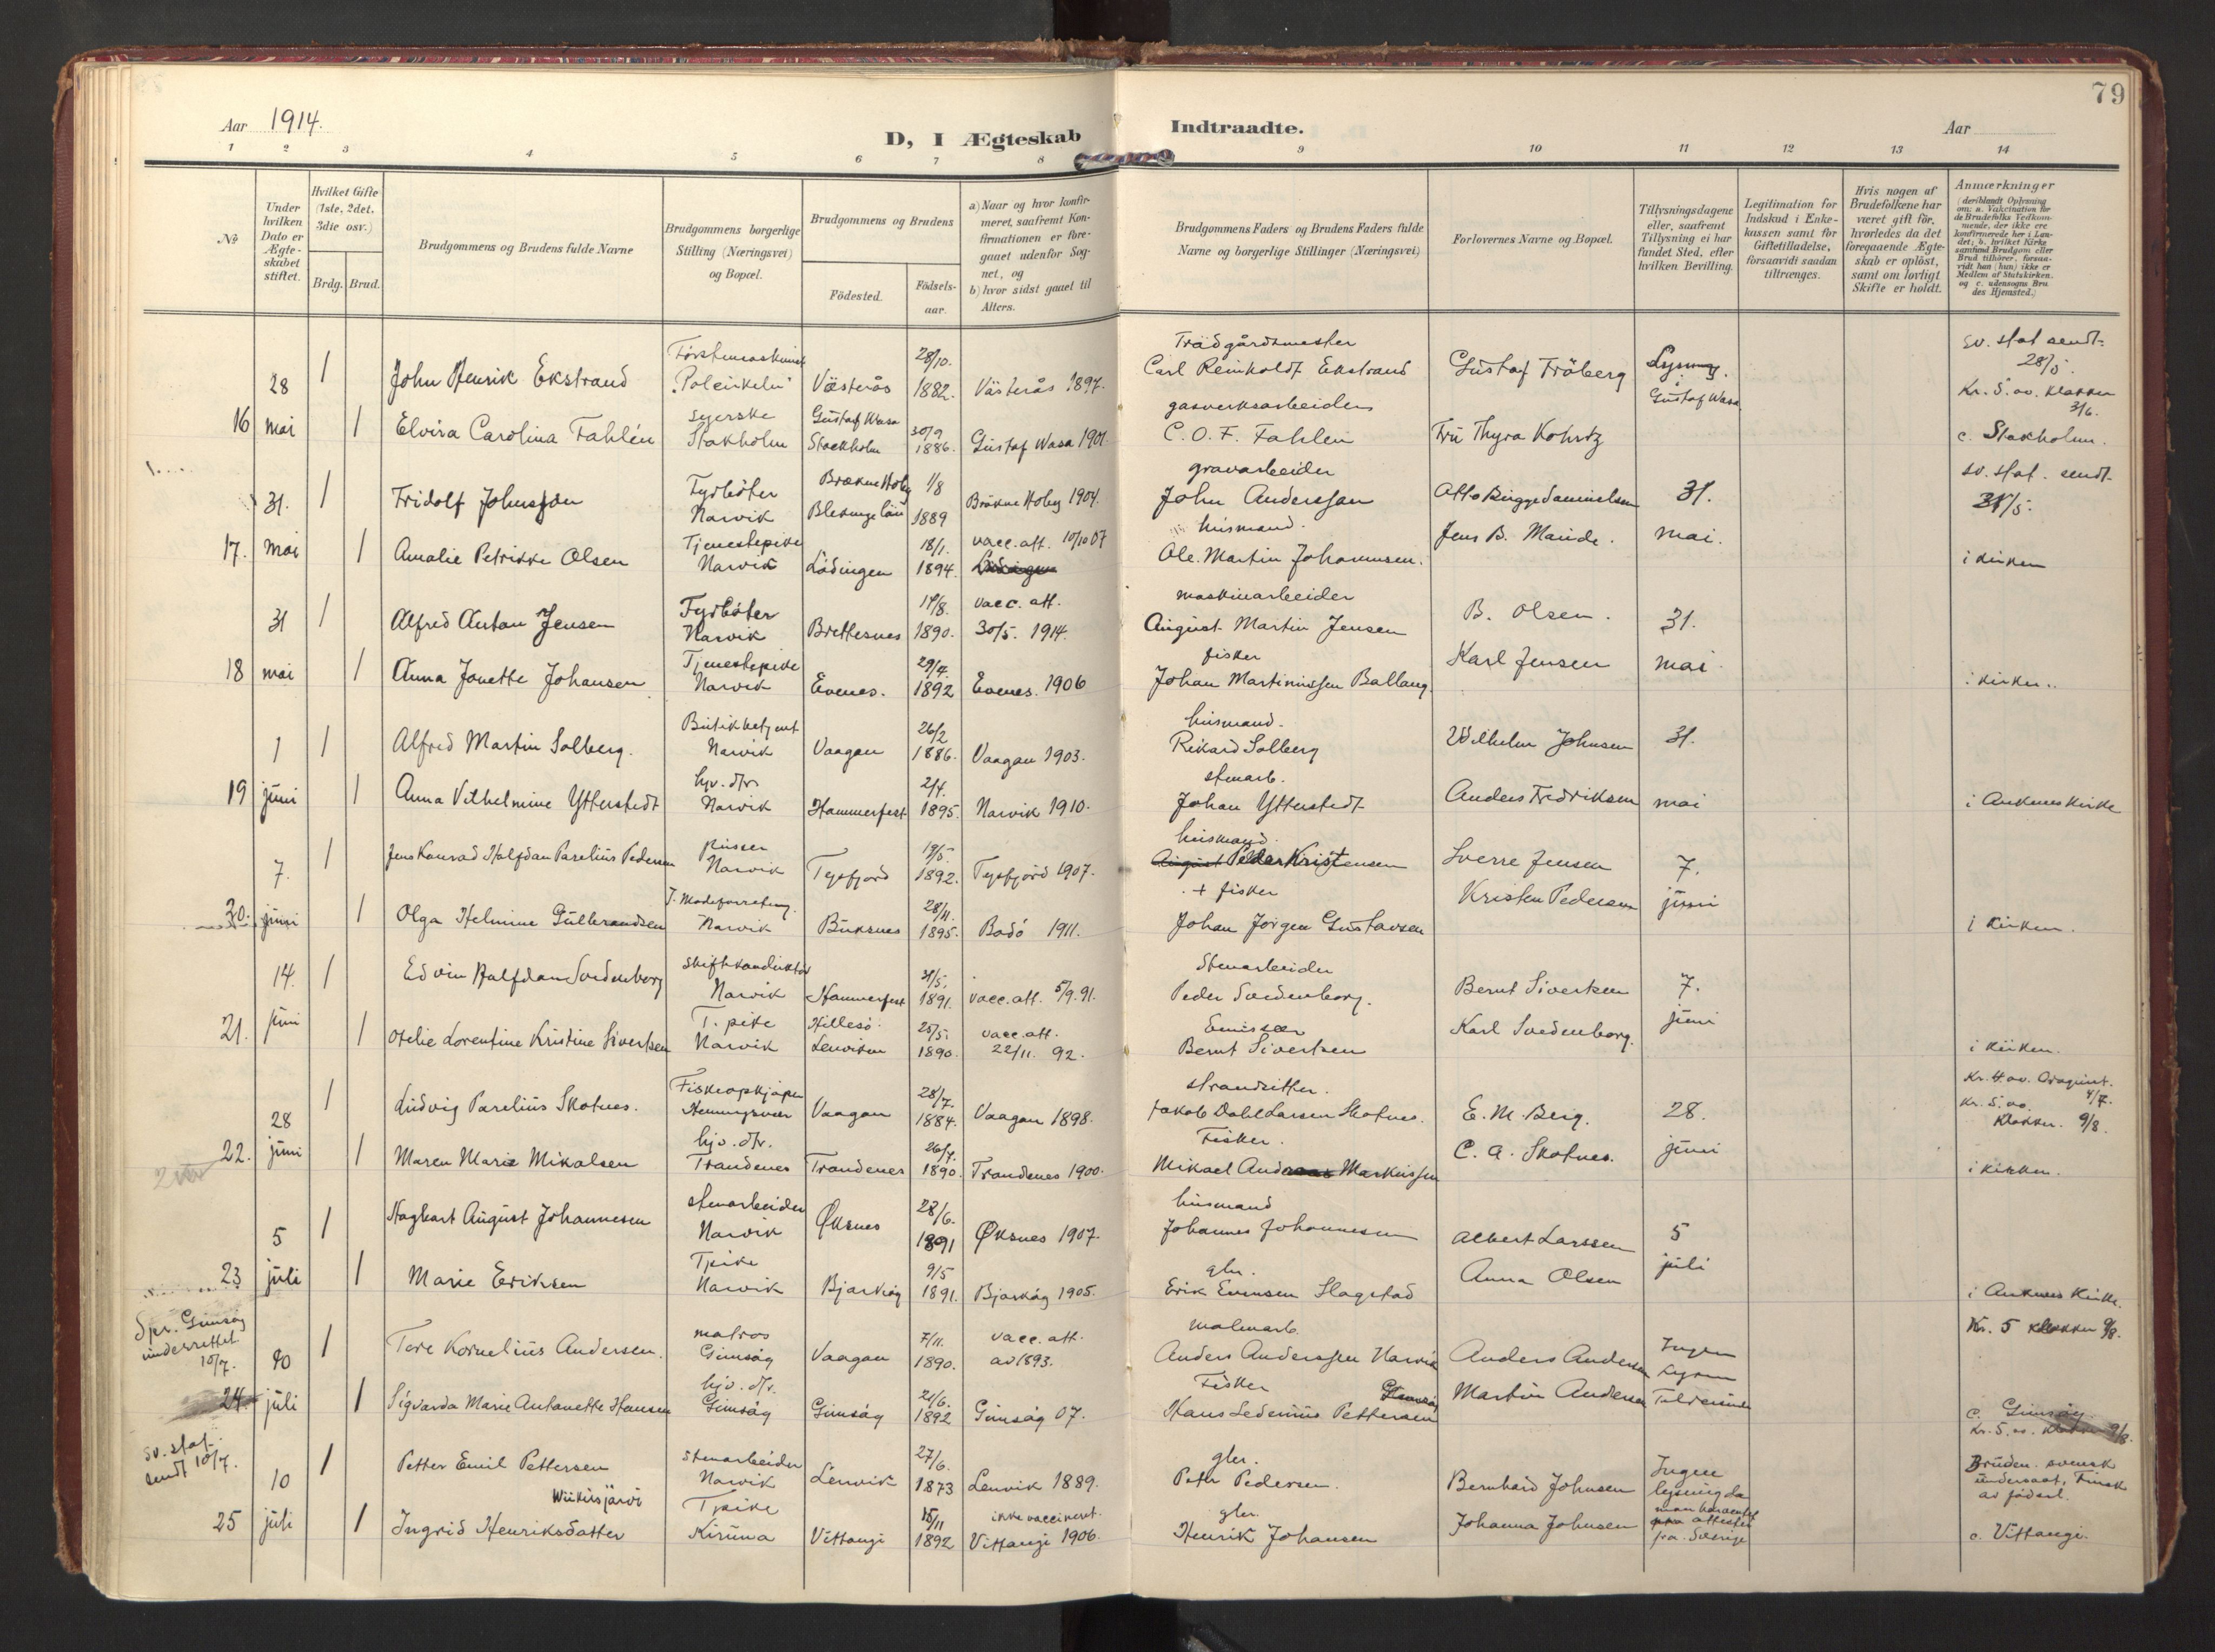 79
Aar 1914.
D, I Ægteskab Indtraadte.
Aar
1 2 3 4 5 6 7 8 9 10 11 12 13 14
No
Under hvilken Dato er Ægte-skabet stiftet.
Hvilket Gifte (1ste, 2det, 3die osv.)
Brdg. Brud.
Brudgommens og Brudens fulde Navne
Brudgommens borgerlige Stilling (Næringsvei) og Bopæl.
Brudgommens og Brudens
Födested.
Födsels-aar.
a) Naar og hvor konfir-meret, saafremt Kon-firmationen er fore-gaaet udenfor Sog-net, og
b) hvor sidst gaaet til Alters.
Brudgommens Faders og Brudens Faders fulde Navne og borgerlige Stillinger (Næringsvei)
Forlovernes Navne og Bopæl.
Tillysningsdagene eller, saafremt Tillysning ei har fundet Sted, efter hvilken Bevilling.
Legitimation for Indskud i Enke-kassen samt for Giftetilladelse, forsaavidt saadan tiltrænges.
Hvis nogen af Brudefolkene har været gift för, hvorledes da det foregaaende Ægte-skab er oplöst, samt om lovligt Skifte er holdt.
Anmærkninger (deriblandt Oplysning om: a. Vakcination for de Brudefolks Vedkom-mende, der ikke ere konfirmerede her i Lan-det; b. hvilket Kirke-samfund Brudgom eller Brud tilhörer, forsaa-vidt han (hun) ikke er Medlem af Statskirken, og c. udensogns Bru-des Hjemsted.)
28 1 John Henrik Ekstrand "Polcirkeln" Västerås 28/10. 1882. Västerås 1897. Trädgårdsmester Carl Reinholdt Ekstrand Gustaf Fröberg Lysning. Gustaf Wasa sv. stat sendt 28/5. Kr. 5. av. klokker 3/6.
16 mai 1 Elvira Carolina Fahlén syerske Stokholm Gustaf Wasa Stockholm 30/9 1886. Gustaf Wasa 1901. gasverksarbeider C. O. F. Fahlén Fru Thyra Kohrtz c. Stokholm.
31. 1 Fridolf Johnsson Fyrböter Narvik Bräkne Hoby Blekinge län 1/8 1889 Bräkne Hoby 1904. gravarbeider John Andersson Otto Bugge Danielsen 31. sv. stat. sendt 31/5.
17. mai 1 Amalie Petrikke Olsen Tjenestepike Narvik Lödingen 18/1. 1894. vacc. att. 10/10 07 husmand. Ole Martin Johannesen. Jens B. Mande. mai. i kirken
31 1 Alfred Anton Jensen Fyrböter Narvik Brettesnes 17/8. 1890. vacc. att. 30/5. 1914. maskinarbeider August Martin Jensen B. Olsen. 31.
18 mai 1 Anna Jonette Johansen Tjenestepike Narvik Evenes. 29/4. 1892 Evenes. 1906 fisker Johan Martinussen Ballang. Karl Jensen mai i kirken.
1 1 Alfred Martin Solberg. Butikbetjent Narvik Vaagan 26/2 1886. Vaagan 1903. husmand. Rikard Solberg Wilhelm Johnsen 31.
19 juni 1 Anna Vilhelmine Ytterstedt hjv. dtr. Narvik Hammerfest 2/4. 1895. Narvik 1910. stenarb. Johan Ytterstedt Anders Fredriksen mai i Ankenes kirke
7. 1 Jens Konrad Halfdan Parelius Pedersen Pusser Narvik Tysfjord 19/5. 1892. Tysfjord 1907. husmand. August Peder Kristensen Sverre Jensen 7.
20. juni 1 Olga Helmine Gulbrandsen Narvik Buksnes 28/11. 1895. Bodö 1911. + fisker Johan Jörgen Gustavsen Kristen Pedersen juni i kirken.
14. 1 Edvin Halfdan Svedenborg skiftkonduktör Narvik Hammerfest 31/5. 1891. vacc. att. 5/9. 91. Stenarbeider Peder Svedenborg. Bernt Sivertsen 7.
21. juni 1 Otelie Lorentine Kristine Sivertsen T. pike Narvik Hillesö Lenviken 25/5. 1890. vacc. att. 22/11. 92. Emissær Bernt Sivertsen Karl Svedenborg. juni i kirken.
28 1 Ludvig Parelius Skotnes. Fiskeopkjöper Henningsvær Vaagan 28/7. 1884. Vaagan 1898. strandsitter. Jakob Dahl Larsen Skotnes. E. M. Berg. 28. 4/7. Kr. 5. av. Klokker. 9/8.
22. juni 1 Maren Marie Mikalsen hjv. dtr. Trondenes Trondenes 26/7. 1890. Trondenes 1900. Fisker. Mikael Markussen C. A. Skotnes. juni i kirken.
5 1 Hagbart August Johannesen stenarbeider Narvik Øksnes 28/6. 1891 Øksnes 1907. husmand Johannes Johannesen Albert Larssen 5
23 juli 1 Marie Eriksen Tpike Narvik Bjarköy 9/5 1891. Bjarköy 1905. gbr. Erik Evensen Slagstad Anna Olsen juli i Ankenes Kirke.
Spr. Gimsöy underrettet 10/7.
10 1 Tore Kornelius Andersen. matros Gimsöy Vaagan 7/11. 1890. vacc. att. av 1893. malmarb. Anders Anderssen Narvik Anders Andersen Ingen Kr. 5 klokker 9/8.
24. juli 1 Sigvarda Marie Antonette Hansen hjv. dtr. Gimsöy Gimsöy 21/6. 1892 Gimsöy 07. Fisker Gimsöy Hans Ledenius Pettersen Martin Andersen c. Gimsöy. Kr. 5. av. klokker 9/8.
sv. stat. sendt 10/7.
10 1 Petter Emil Pettersen stenarbeider Narvik Lenvik 27/6. 1873 Lenvik 1889. gbr. Peter Pedersen. Bernhard Johnsen Ingen lysning da man har attester fra Sverige Bruden svensk undersaat, Finsk av födsel.
25 juli 1 Ingrid Henriksdatter Wiikusjärvi Tpike Kiruna Vittangi 15/11 1892 ikke vaccineret. Vittangi 1906. gbr. Henrik Johansen Johanna Johnsen c. Vittangi.